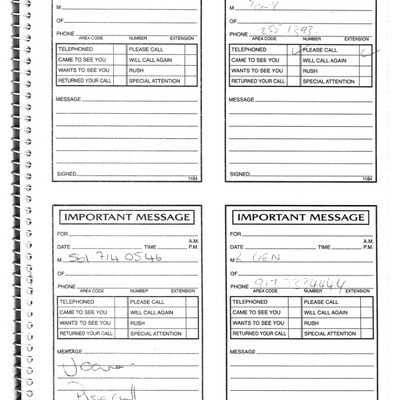 M
OF
PHONE
AREA CODE NUMBER EXTENSION
TELEPHONED PLEASE CALL
CAME TO SEE YOU WILL CALL AGAIN
WANTS TO SEE YOU RUSH
RETURNED YOUR CALL SPECIAL ATTENTION
MESSAGE
SIGNED
1184
M
OF
PHONE
AREA CODE NUMBER EXTENSION
TELEPHONED PLEASE CALL
CAME TO SEE YOU WILL CALL AGAIN
WANTS TO SEE YOU RUSH
RETURNED YOUR CALL SPECIAL ATTENTION
MESSAGE
SIGNED
1184
IMPORTANT MESSAGE
FOR
A.M.
DATE TIME P.M.
M 561 714 0546
OF
PHONE
AREA CODE NUMBER EXTENSION
TELEPHONED PLEASE CALL
CAME TO SEE YOU WILL CALL AGAIN
WANTS TO SEE YOU RUSH
RETURNED YOUR CALL SPECIAL ATTENTION
MESSAGE
IMPORTANT MESSAGE
FOR
A.M.
DATE TIME P.M.
M
OF
PHONE
AREA CODE NUMBER EXTENSION
TELEPHONED PLEASE CALL
CAME TO SEE YOU WILL CALL AGAIN
WANTS TO SEE YOU RUSH
RETURNED YOUR CALL SPECIAL ATTENTION
MESSAGE